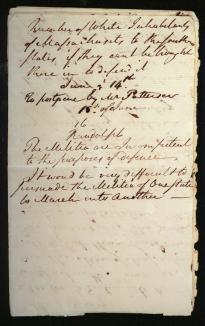 Number of White Inhabitants
of Massachusetts to the South
States if they can't be brought
there in to defend it
June 14th
to postpone by Mr Patterson
16th of June
16
Randolph
The Militia are Incompetent
to the purposes of defence
It would be very difficult to
persuade the Militia of One State
to March into Another —